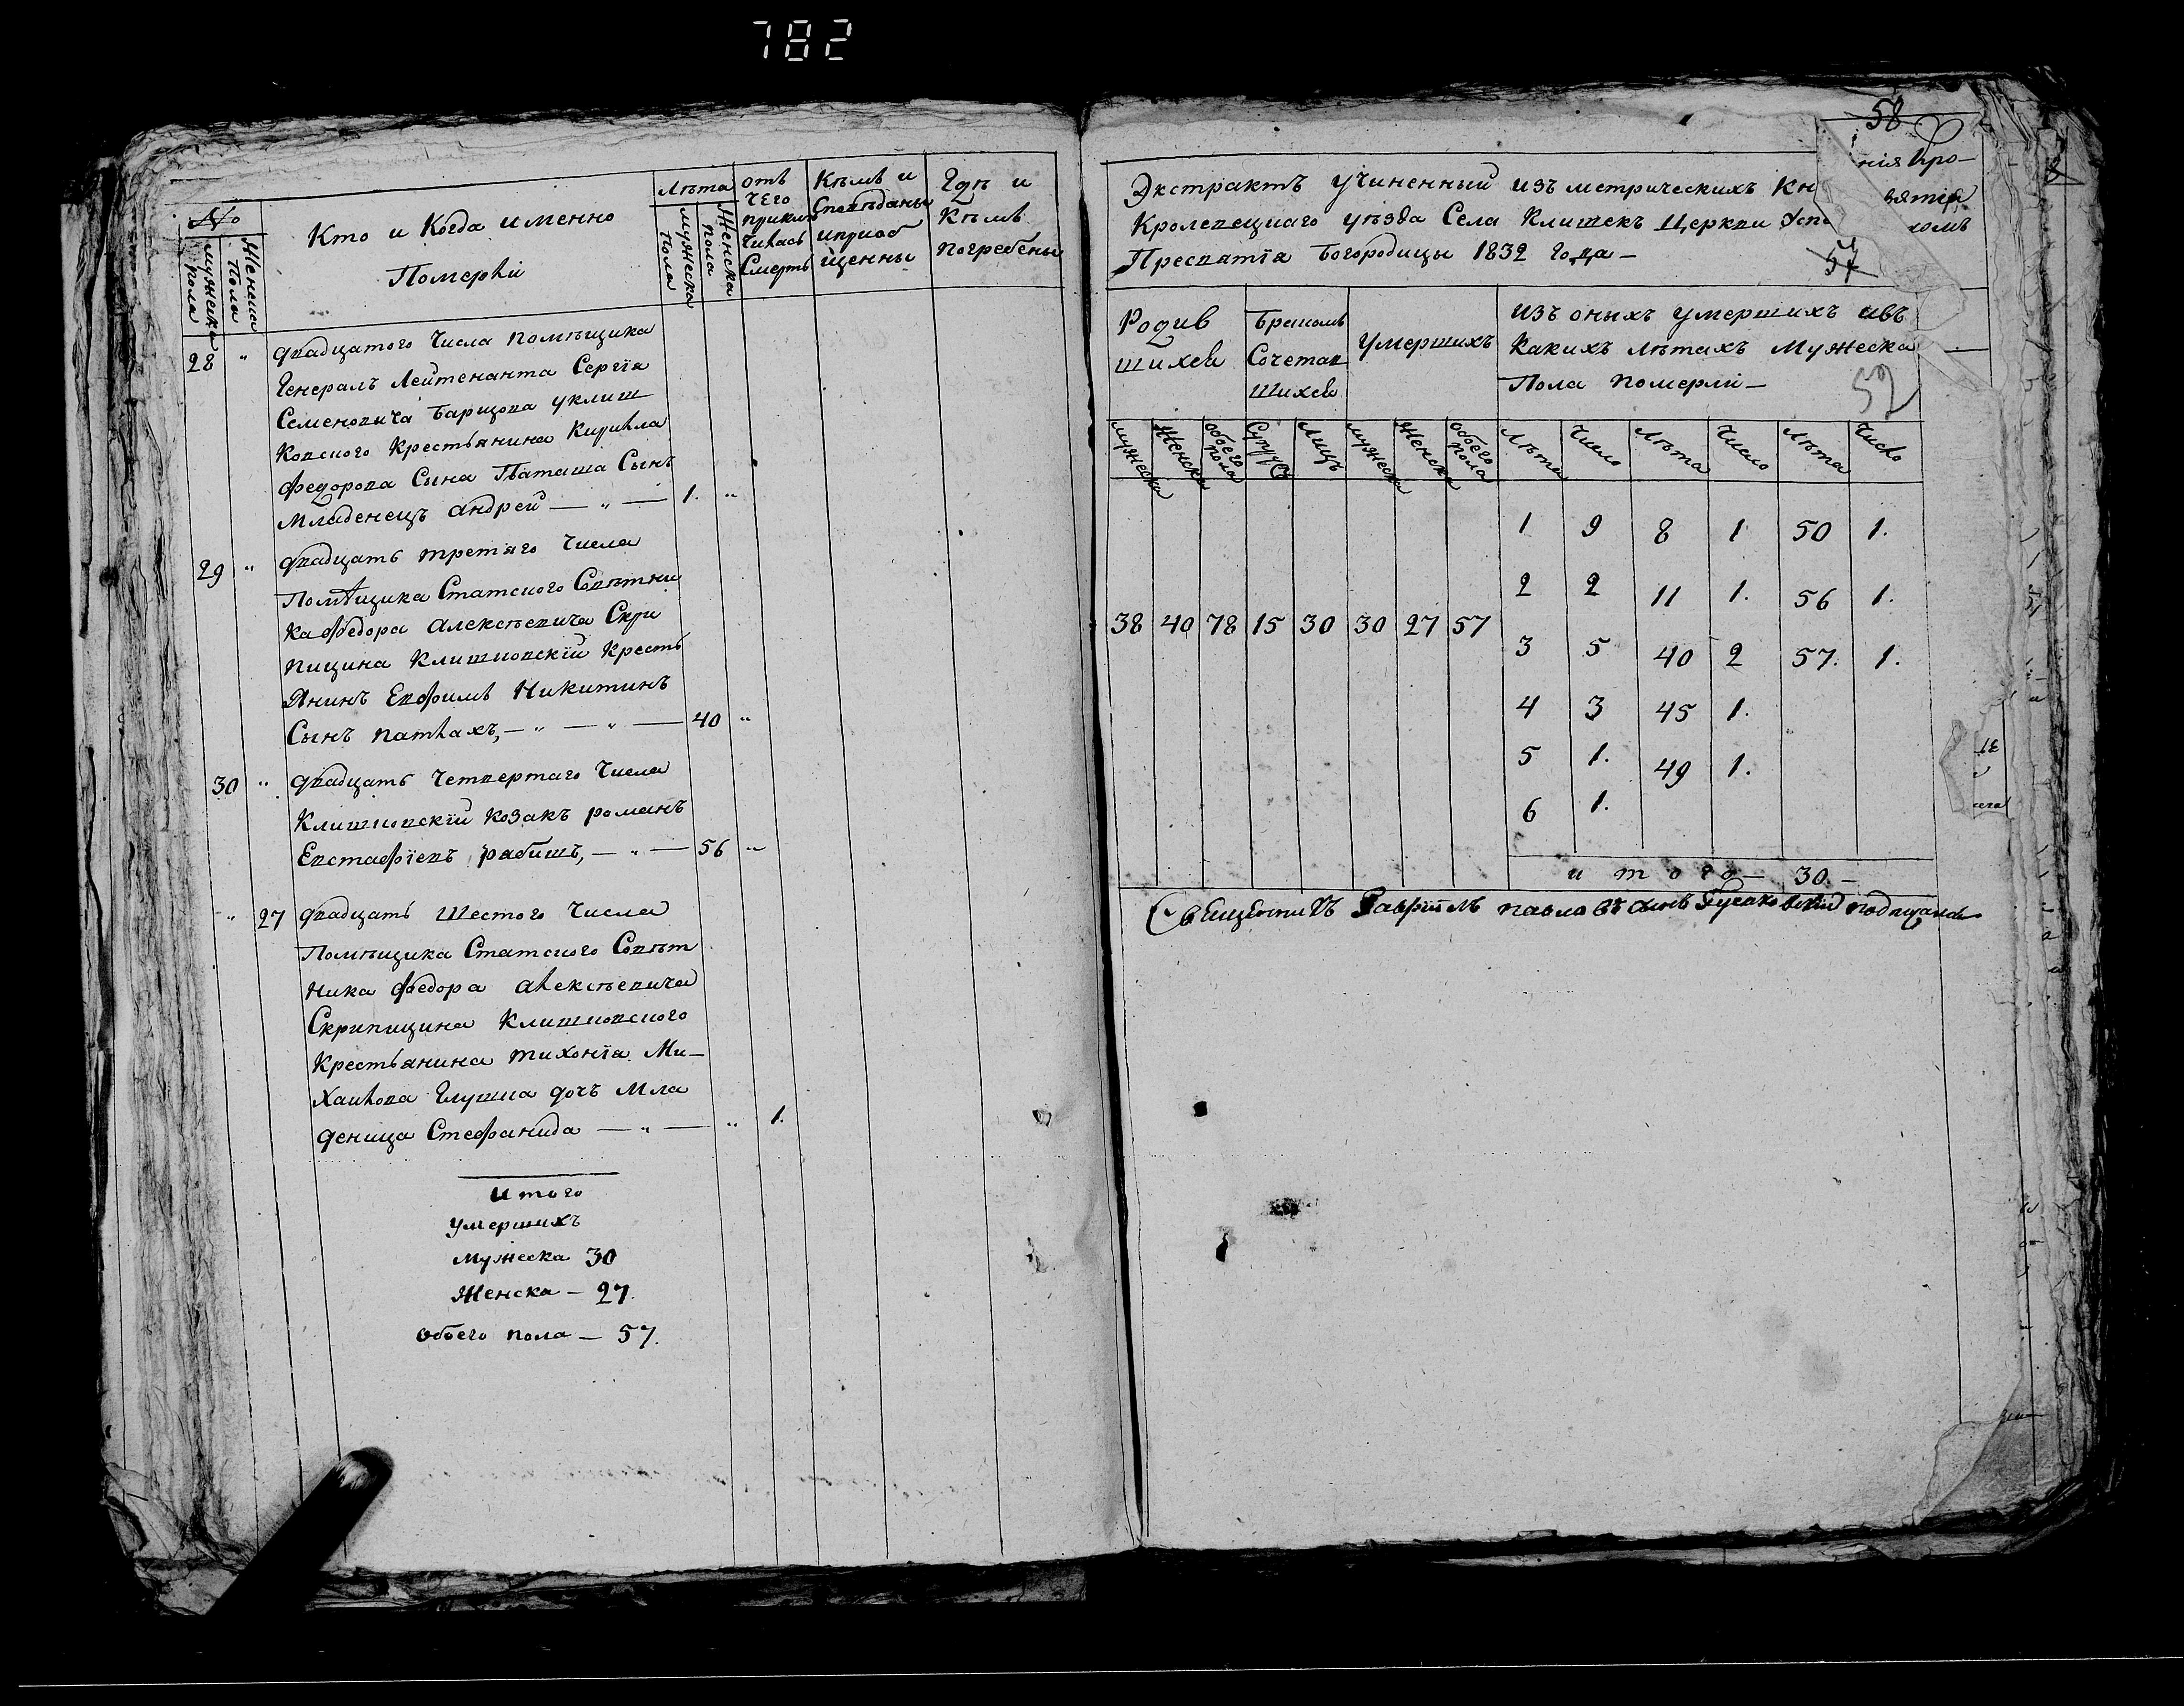 782
№
Мужеска пола
Женска Пола
Кто и Когда именно
Померли
Лѣта
Мужеска Пола
Женска пола
отъ
чего
приклю
чилась
Смерть
Кѣмъ и
Споведаны
и приоб
щенны
Гдѣ и
Кѣмъ
Погребены
28 " двадцатого Числа помѣщика
Генералъ Лейтенанта Сергія
Семеновича Барщова Клиш
ковского Крестьянина Кирилла
Федорова Сына Сынъ
Младенецъ андрей — " — 1. "
29 " двадцать третяго Числа
Помѣщика Статского Совѣтни
ка Федора алексѣевича Скри
пицина Клишковскій Кресть
янинъ Евфимъ Никитинъ
Сынъ — " — " — 40 "
30 " двадцать Четвертаго Числа
Клишковскій козакъ романъ
Евстафіевъ рабишъ, — " — 56 "
" 27 двадцать Шестого Числа
Помѣщика Статского Совѣт
ника Федора алексѣевича
Скрипицина Клишковского
Крестьянина тихонїа Ми—
хайлова дочъ Мла
деница Стефанида — " — " 1.
Итого
умершихъ
мужеска 30
Женска — 27.
обоего пола — 57.
58
Экстрактъ учиненный изъ метрическихъ Кн
Кролевецкаго уѣзда Села Клишекъ Церкви Успе
Пресвятїа Богородицы 1832 года —
57
52
Родив
шихсѧ
Бракомъ
Сочетав
шихсѧ
Умершихъ
изъ оныхъ умершихъ
Какихъ лѣтахъ Мужеска
Пола померли —
мужеска
Женска
обоего пола
Супруг
Лицъ
мужеска
Женска
обоего пола
Лѣта
Число
Лѣта
Число
Лѣта
Число
1 9 8 1 50 1.
2 2 11 1. 56 1.
38 40 78 15 30 30 27 57
3 5 40 2 57. 1.
4 3 45 1.
5 1. 49 1.
6 1.
и т о г о — 30 —
Священникъ Гавріилъ павловъ сынъ подписалъ